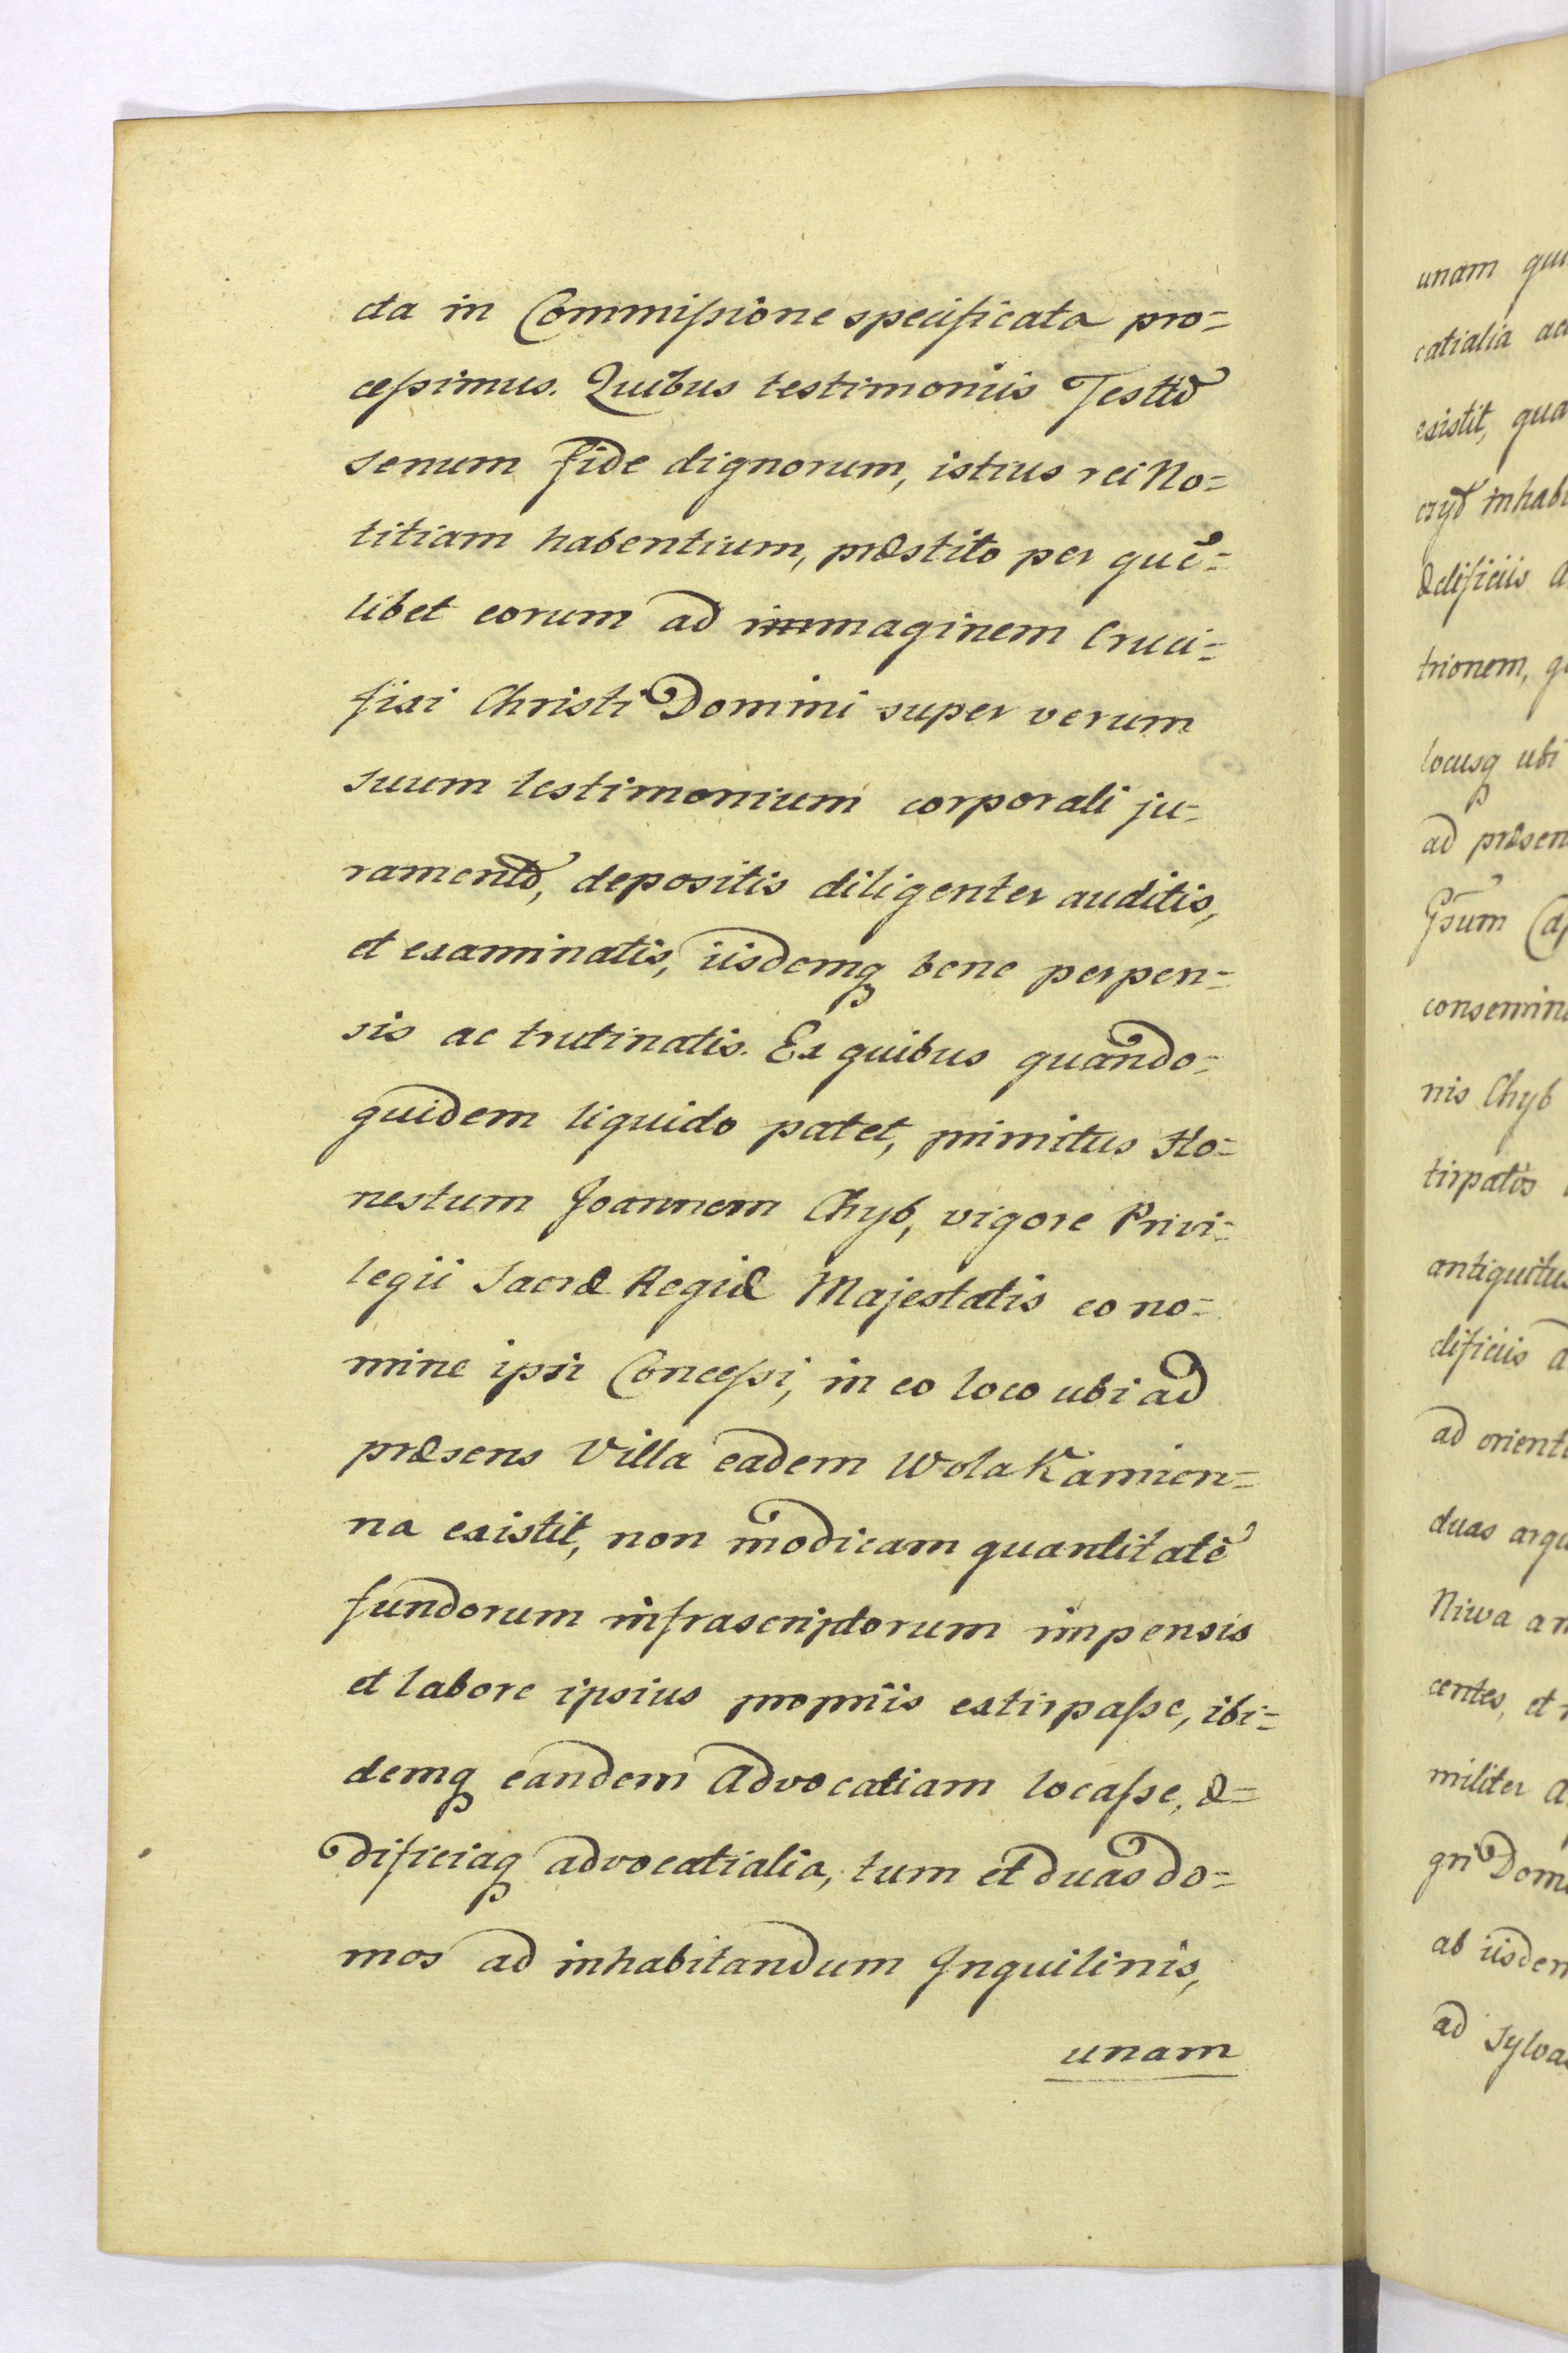 da in Commissione specificata pro=
cessimus. Quibus testimoniis Testiũ
senum fide dignorum, istius rei No=
titiam habentium, præstito per quẽ=
libet eorum ad immaginem Cruci=
fixi Christi Domini super verum
suum testimonium corporali ju=
ramento, depositis diligenter auditis,
et examinatis, iisdemq bene perpen=
sis ac trutinatis. Ex quibus quando=
quidem liquido patet, primitus Ho=
nestum Joannem Chyb, vigore Privi=
legii Sacræ Regiæ Majestatis eo no=
mine ipsi Concessi, in eo loco ubi ad
præsens Villa eadem Wola Kamien=
na existit, non modicam quantitatẽ
fundorum infrascriptorum impensis
et labore ipsius propriis extirpasse, ibi=
demq eandem Advocatiam locasse, æ=
dificiaq advocatialia, tum et duas do=
mos ad inhabitandum Inquilinis,
unam
unam
catialia
existit,
inhab
ædificiis
trionem,
locusq ubi
ad præsen
Gsum
consemin
nis Chyb
tirpatis
antiquitus
dificiis
ad orient
duas
Niwa
centes, et
militer
gri Dom
ab iisdem
ad Sylva